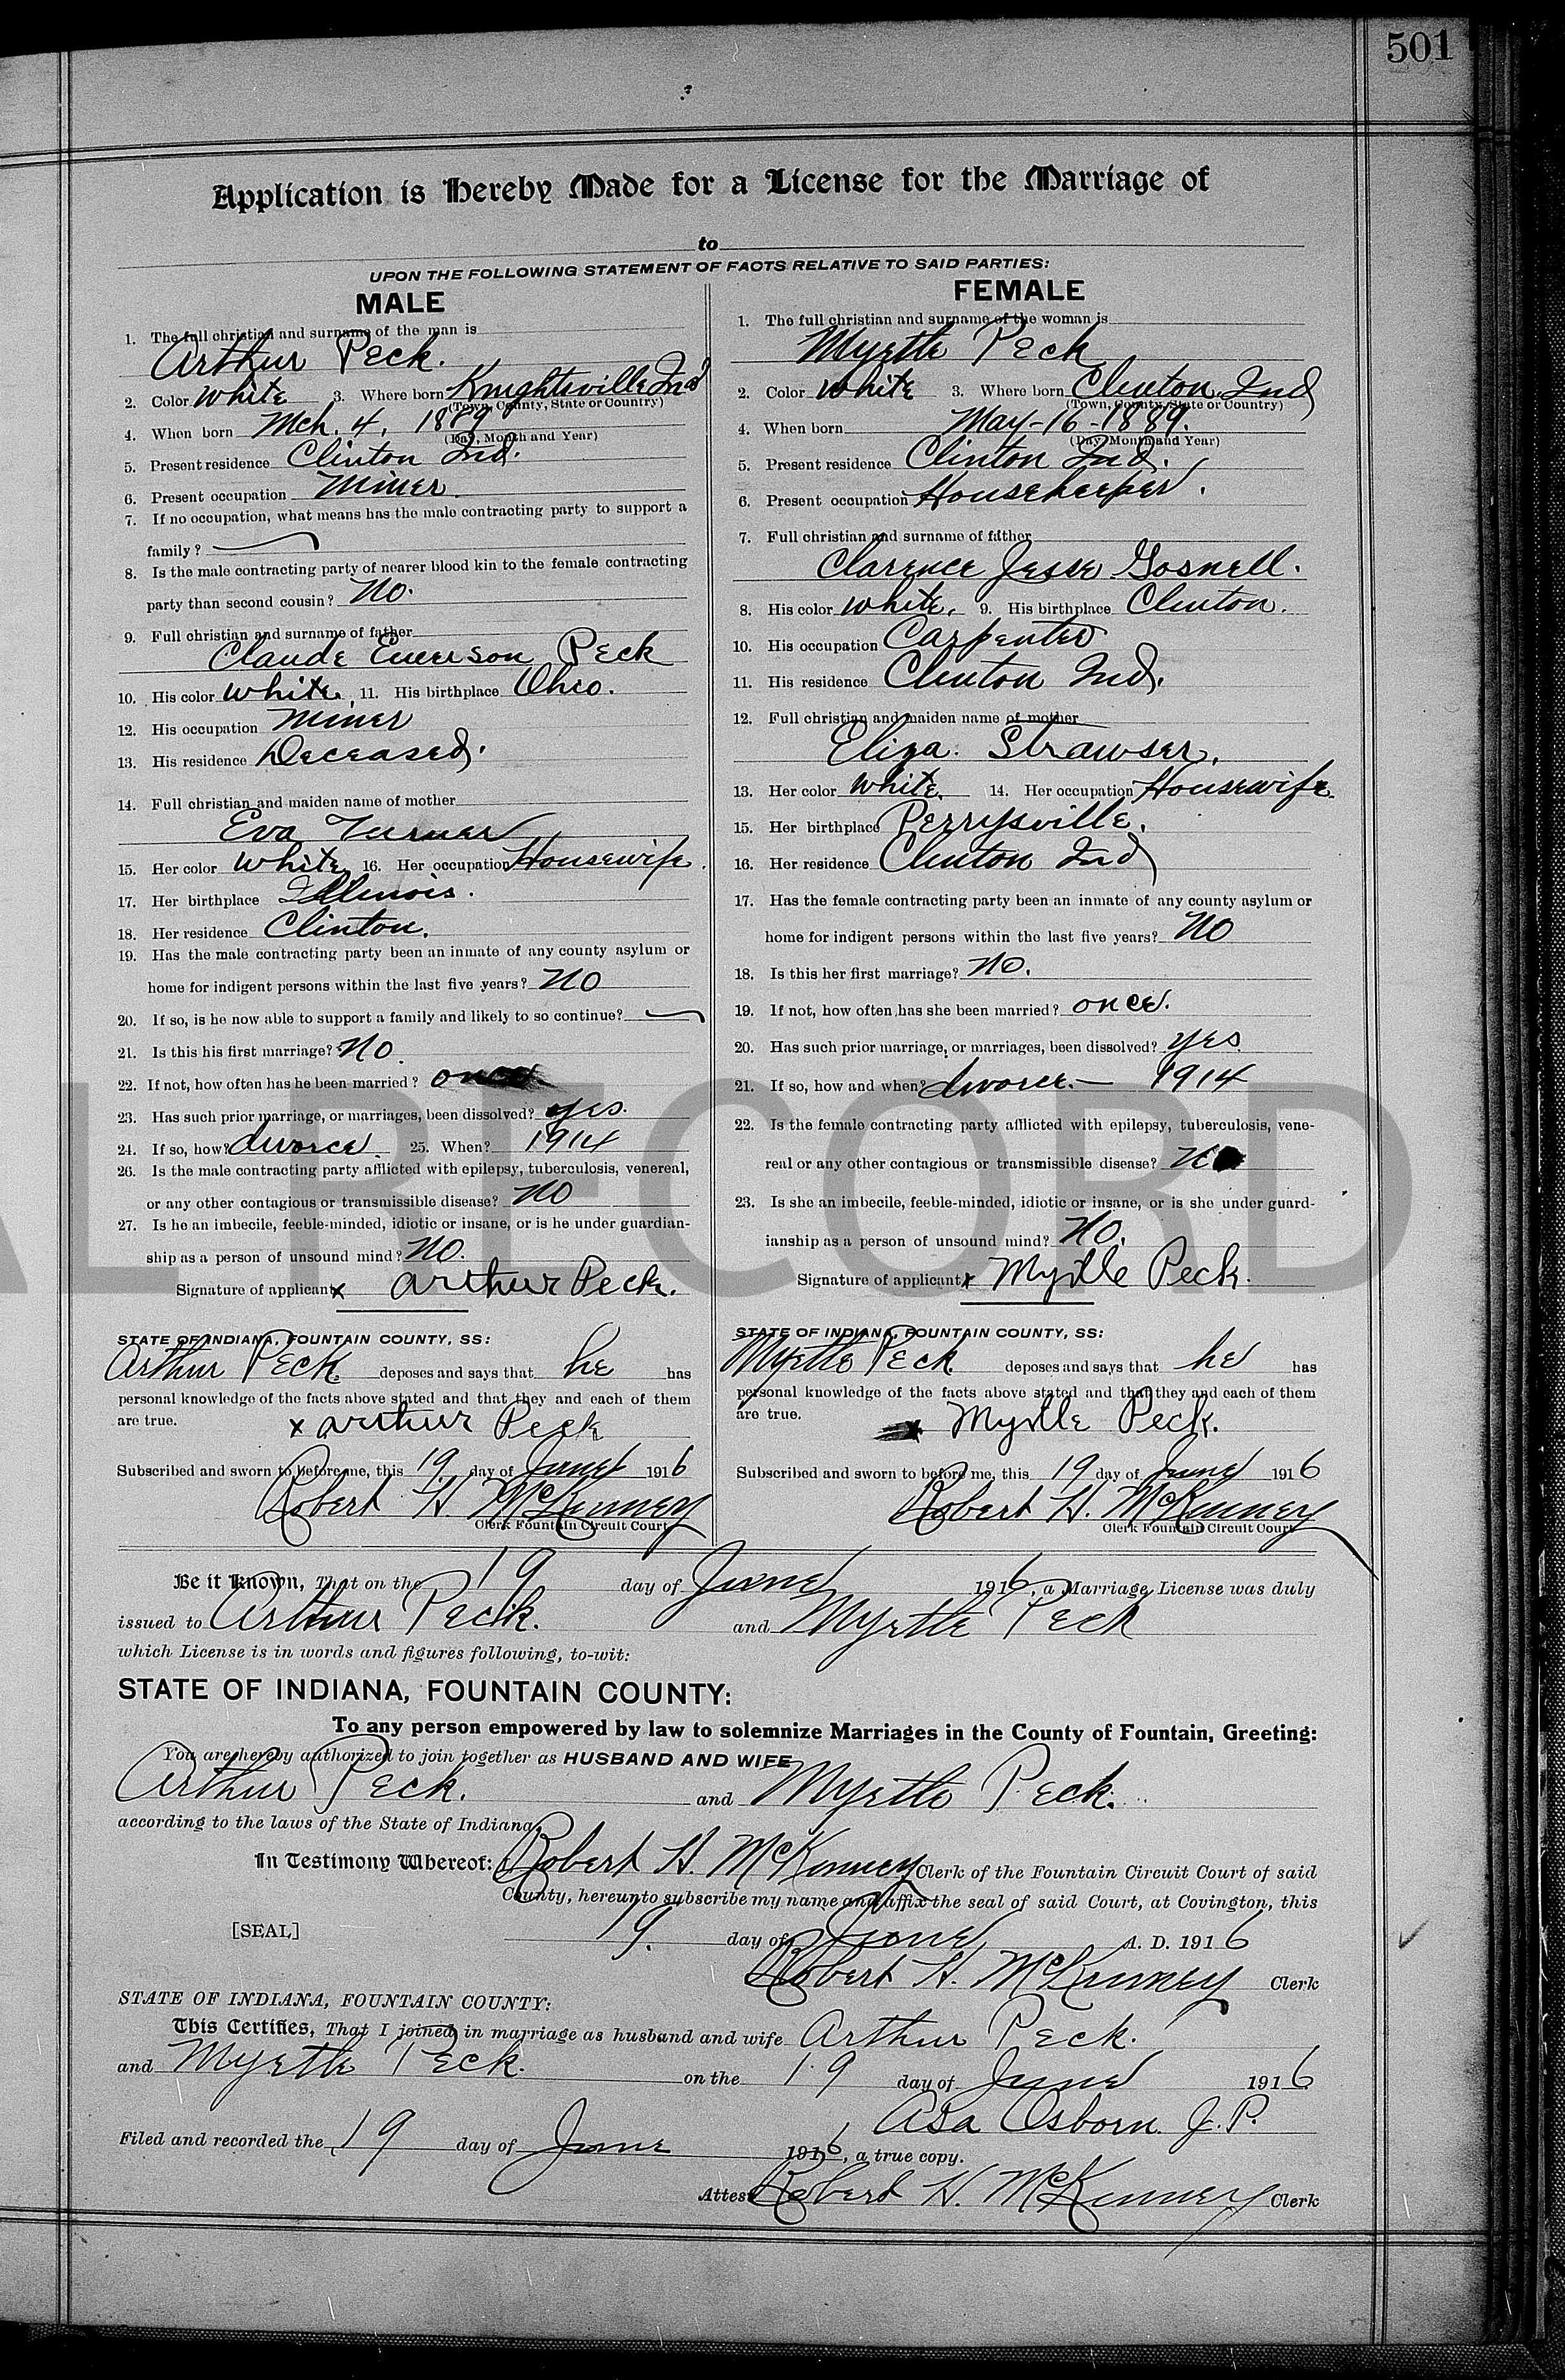 501
Application is Hereby Made for a License for the Marriage of
to
UPON THE FOLLOWING STATEMENT OF FACTS RELATIVE TO SAID PARTIES:
MALE
1. The full christian and surname of the man is
Arthur Peck.
2. Color White 3. Where born Knightsville Ind
(Town, County, State or Country)
4. When born Mch. 4, 1889
(Day, Month and Year)
5. Present residence Clinton Ind.
6. Present occupation Miner.
7. If no occupation, what means has the male contracting party to support a
family?
8. Is the male contracting party of nearer blood kin to the female contracting
party than second cousin? No.
9. Full christian and surname of father
Claude Emerson Peck
10. His color White, 11. His birthplace Ohio.
12. His occupation Miner
13. His residence Deceased.
14. Full christian and maiden name of mother
Eva Turner
15. Her color White 16. Her occupation Housewife.
17. Her birthplace Illinois.
18. Her residence Clinton.
19. Has the male contracting party been an inmate of any county asylum or
home for indigent persons within the last five years? No
20. If so, is he now able to support a family and likely to so continue?
21. Is this his first marriage? No.
22. If not, how often has he been married? once
23. Has such prior marriage, or marriages, been dissolved? yes.
24. If so, how? divorce. 25. When? 1914
26. Is the male contracting party afflicted with epilepsy, tuberculosis, venereal,
or any other contagious or transmissible disease? No
27. Is he an imbecile, feeble-minded, idiotic or insane, or is he under guardian-
ship as a person of unsound mind? No.
Signature of applicant x Arthur Peck.
STATE OF INDIANA, FOUNTAIN COUNTY, SS:
Arthur Peck deposes and says that he has
personal knowledge of the facts above stated and that they and each of them
are true.
x Arthur Peck
Subscribed and sworn to before me, this 19. day of June 1916
Robert H. McKinney
Clerk Fountain Circuit Court
FEMALE
1. The full christian and surname of the woman is
Myrtle Peck
2. Color White 3. Where born Clinton, Ind
(Town, County, State or Country)
4. When born May-16-1889.
(Day, Month and Year)
5. Present residence Clinton Ind.
6. Present occupation Housekeeper.
7. Full christian and surname of father
Clarence Jesse Gosnell.
8. His color White. 9. His birthplace Clinton.
10. His occupation Carpenter
11. His residence Clinton Ind.
12. Full christian and maiden name of mother
Eliza Strawser.
13. Her color White. 14. Her occupation Housewife.
15. Her birthplace Perrysville.
16. Her residence Clinton Ind
17. Has the female contracting party been an inmate of any county asylum or
home for indigent persons within the last five years? No
18. Is this her first marriage? No.
19. If not, how often has she been married? once.
20. Has such prior marriage, or marriages, been dissolved? yes.
21. If so, how and when? divorce.— 1914
22. Is the female contracting party afflicted with epilepsy, tuberculosis, vene-
real or any other contagious or transmissible disease? No
23. Is she an imbecile, feeble-minded, idiotic or insane, or is she under guard-
ianship as a person of unsound mind? No.
Signature of applicant x Myrtle Peck.
STATE OF INDIANA, FOUNTAIN COUNTY, SS:
Myrtle Peck deposes and says that he has
personal knowledge of the facts above stated and that they and each of them
are true.
Myrtle Peck.
Subscribed and sworn to before me, this 19 day of June 1916
Robert H. McKinney
Clerk Fountain Circuit Court
Be it Known, That on the 19 day of June 1916, a Marriage License was duly
issued to Arthur Peck. and Myrtle Peck
which License is in words and figures following, to-wit:
STATE OF INDIANA, FOUNTAIN COUNTY:
To any person empowered by law to solemnize Marriages in the County of Fountain, Greeting:
You are hereby authorized to join together as HUSBAND AND WIFE
Arthur Peck. and Myrtle Peck.
according to the laws of the State of Indiana.
In Testimony Whereof: Robert H. McKinney Clerk of the Fountain Circuit Court of said
County, hereunto subscribe my name and affix the seal of said Court, at Covington, this
[SEAL] 19. day of June A. D. 1916
Robert H. McKinney Clerk
STATE OF INDIANA, FOUNTAIN COUNTY:
This Certifies, That I joined in marriage as husband and wife Arthur Peck.
and Myrtle Peck. on the 19 day of June 1916
Asa Osborn J. P.
Filed and recorded the 19 day of June 1916, a true copy.
Attest Robert H. McKinney Clerk
AL RECORD